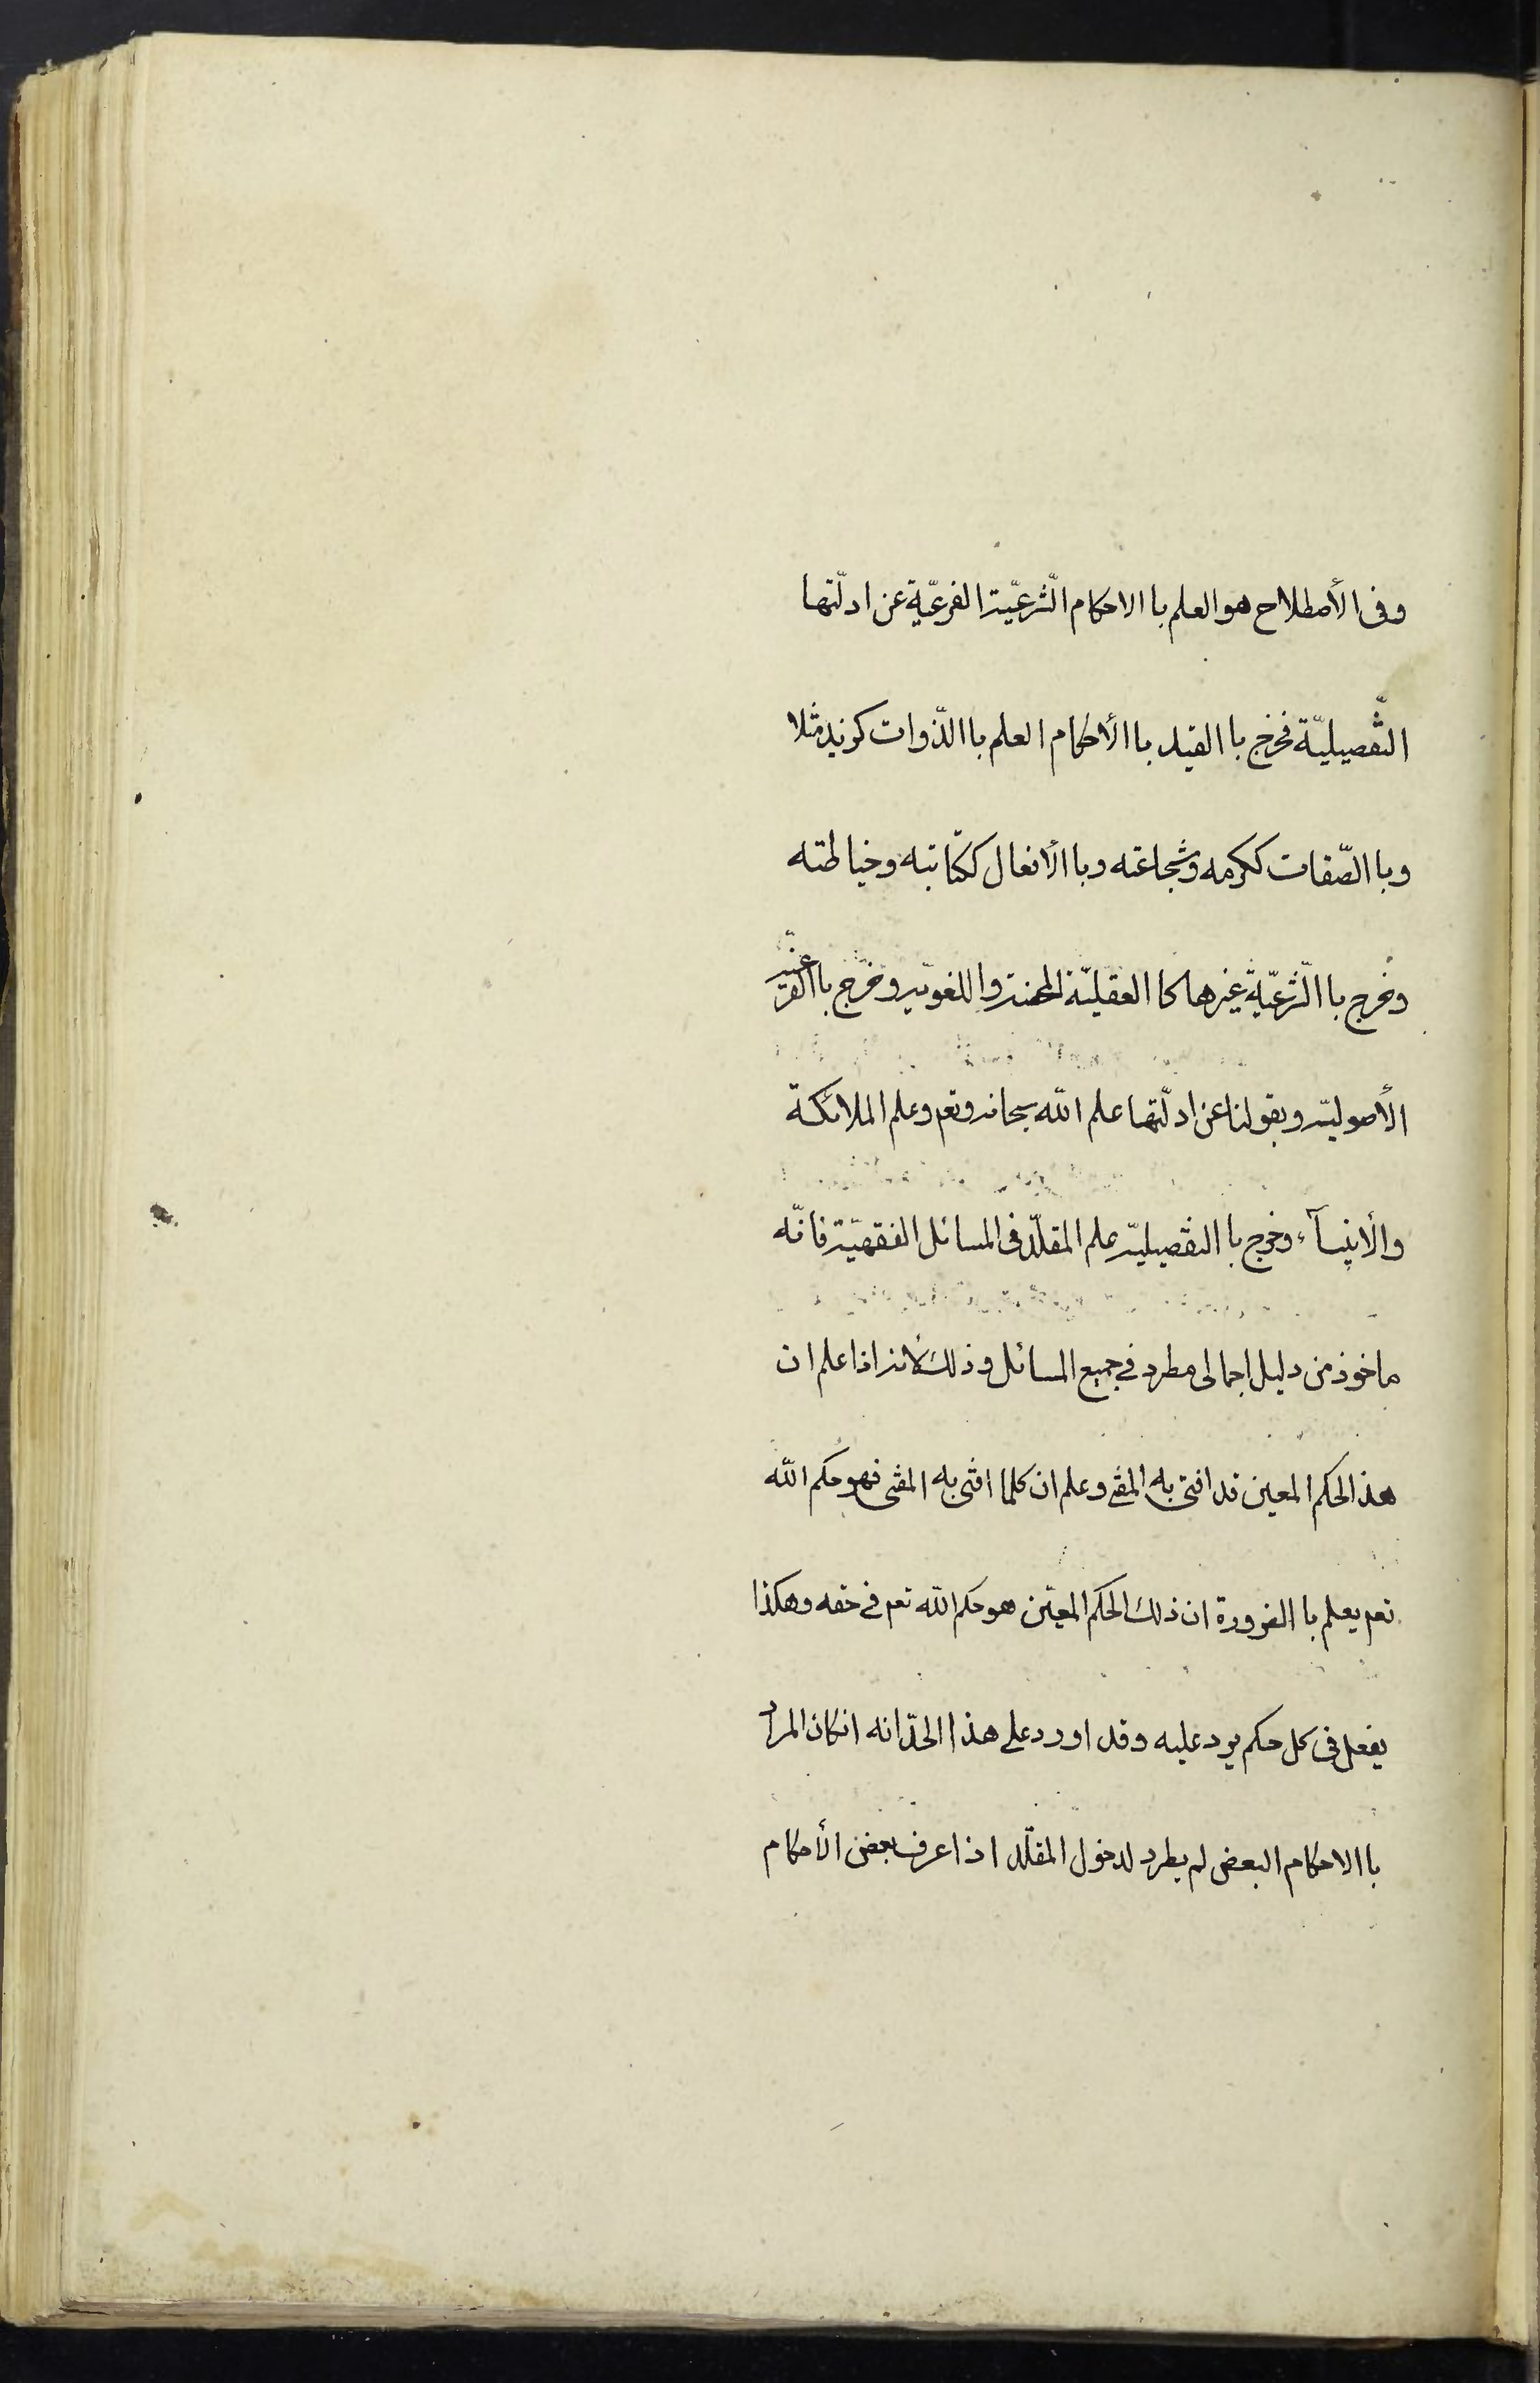 وفى الأصطلاح هو العلم با الاحكام الشّرعيّة الفرعيّة عن ادلّتها
التّفصيليّة فخرج با القيد با الأحكام العلم با الذّوات كزيد مثلا
وبا الصّفات ككرمه وشجاعته وبا الأفعال ككتابته وخياطته
وخرج با الشّرعيّة غيرها كا العقليّة المحضة واللغويّة وخرج با الفرعيّة
الأصوليّة وبقولنا عن ادلّتها علم الله سبحانه وتعم وعلم الملائكة
والأنبيآء وخرج با التفصيليّة علم المقلّد فى المسائل الفقهيّة فانّه
ماخوذ من دليل اجمالى مطرد فى جميع المسائل وذلك لأنه اذا علم ان
هذا الحكم المعين قد افتى به المفتى وعلم ان كلما افتى به المفتى فهو حكم الله
تعم يعلم با الضرورة ان ذلك الحكم المعيّن هو حكم الله تعم فى حقه وهكذا
يفعل فى كل حكم يرد عليه وقد اورد على هذا الحدّ انه انكان المراد
با الاحكام البعض لم يطرد لدخول المقلّد اذا عرف بعض الأحكام